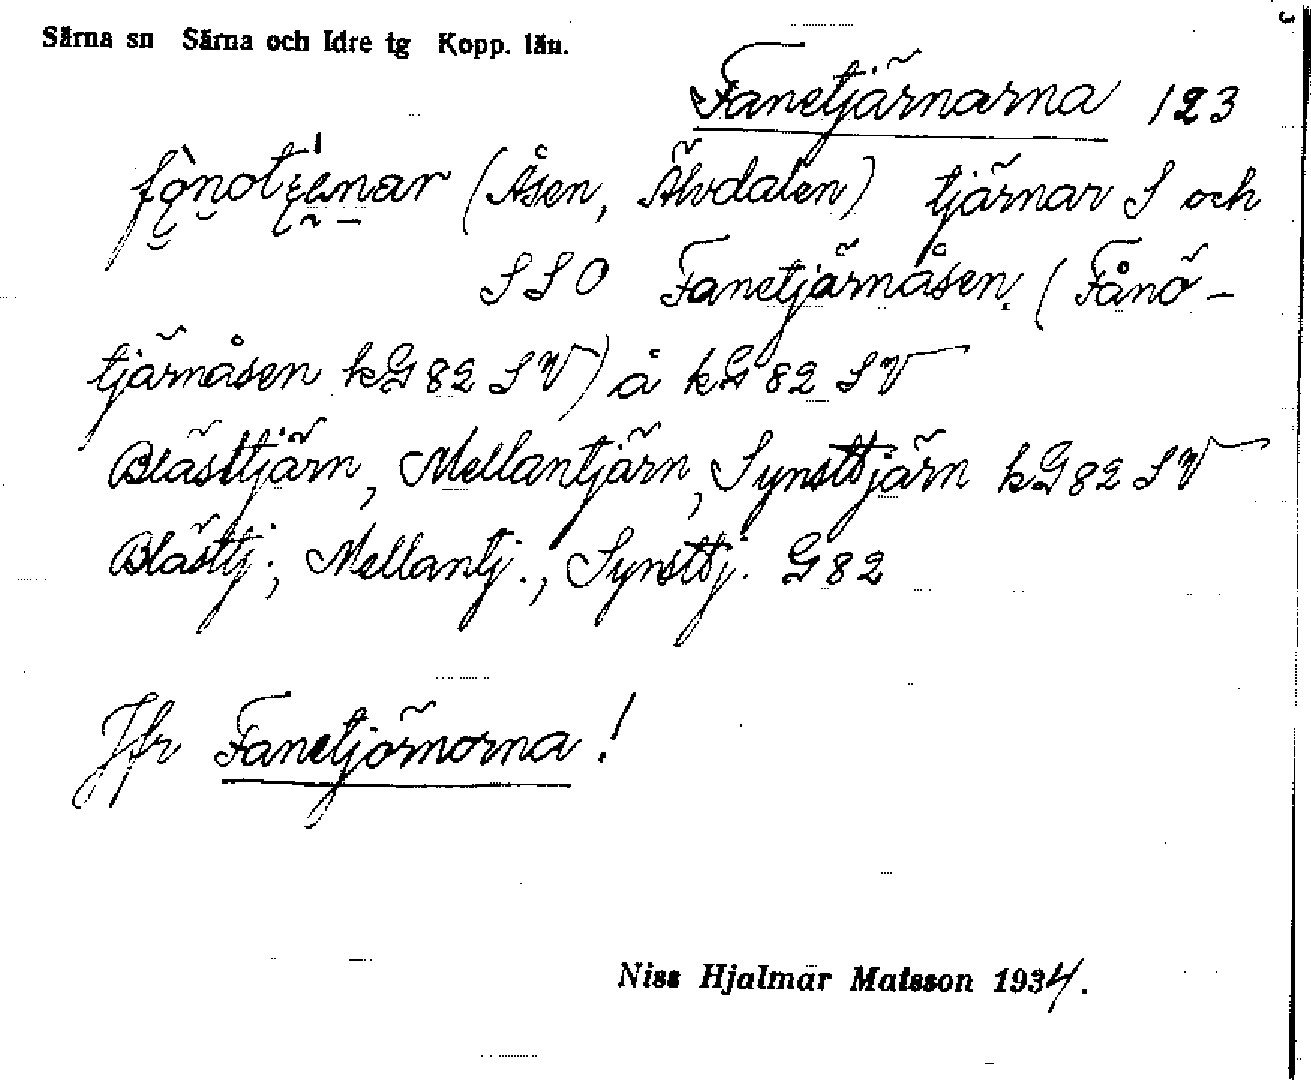 Särna sn Särna och Idre tg Kopp. län.
Fanetjärnarna 123
(Åsen, Älvdalen) tjärnar S och
SSO Fanetjärnåsen (Fånö-
tjärnåsen kG82 SV) å kG82 SV
Blästtjärn, Mellantjärn, Synsttjärn kG82 SV
Blästtj., Mellantj., Synsttj. G82
Jfr Fanetjörnorna!
Niss Hjalmar Matsson 1934.